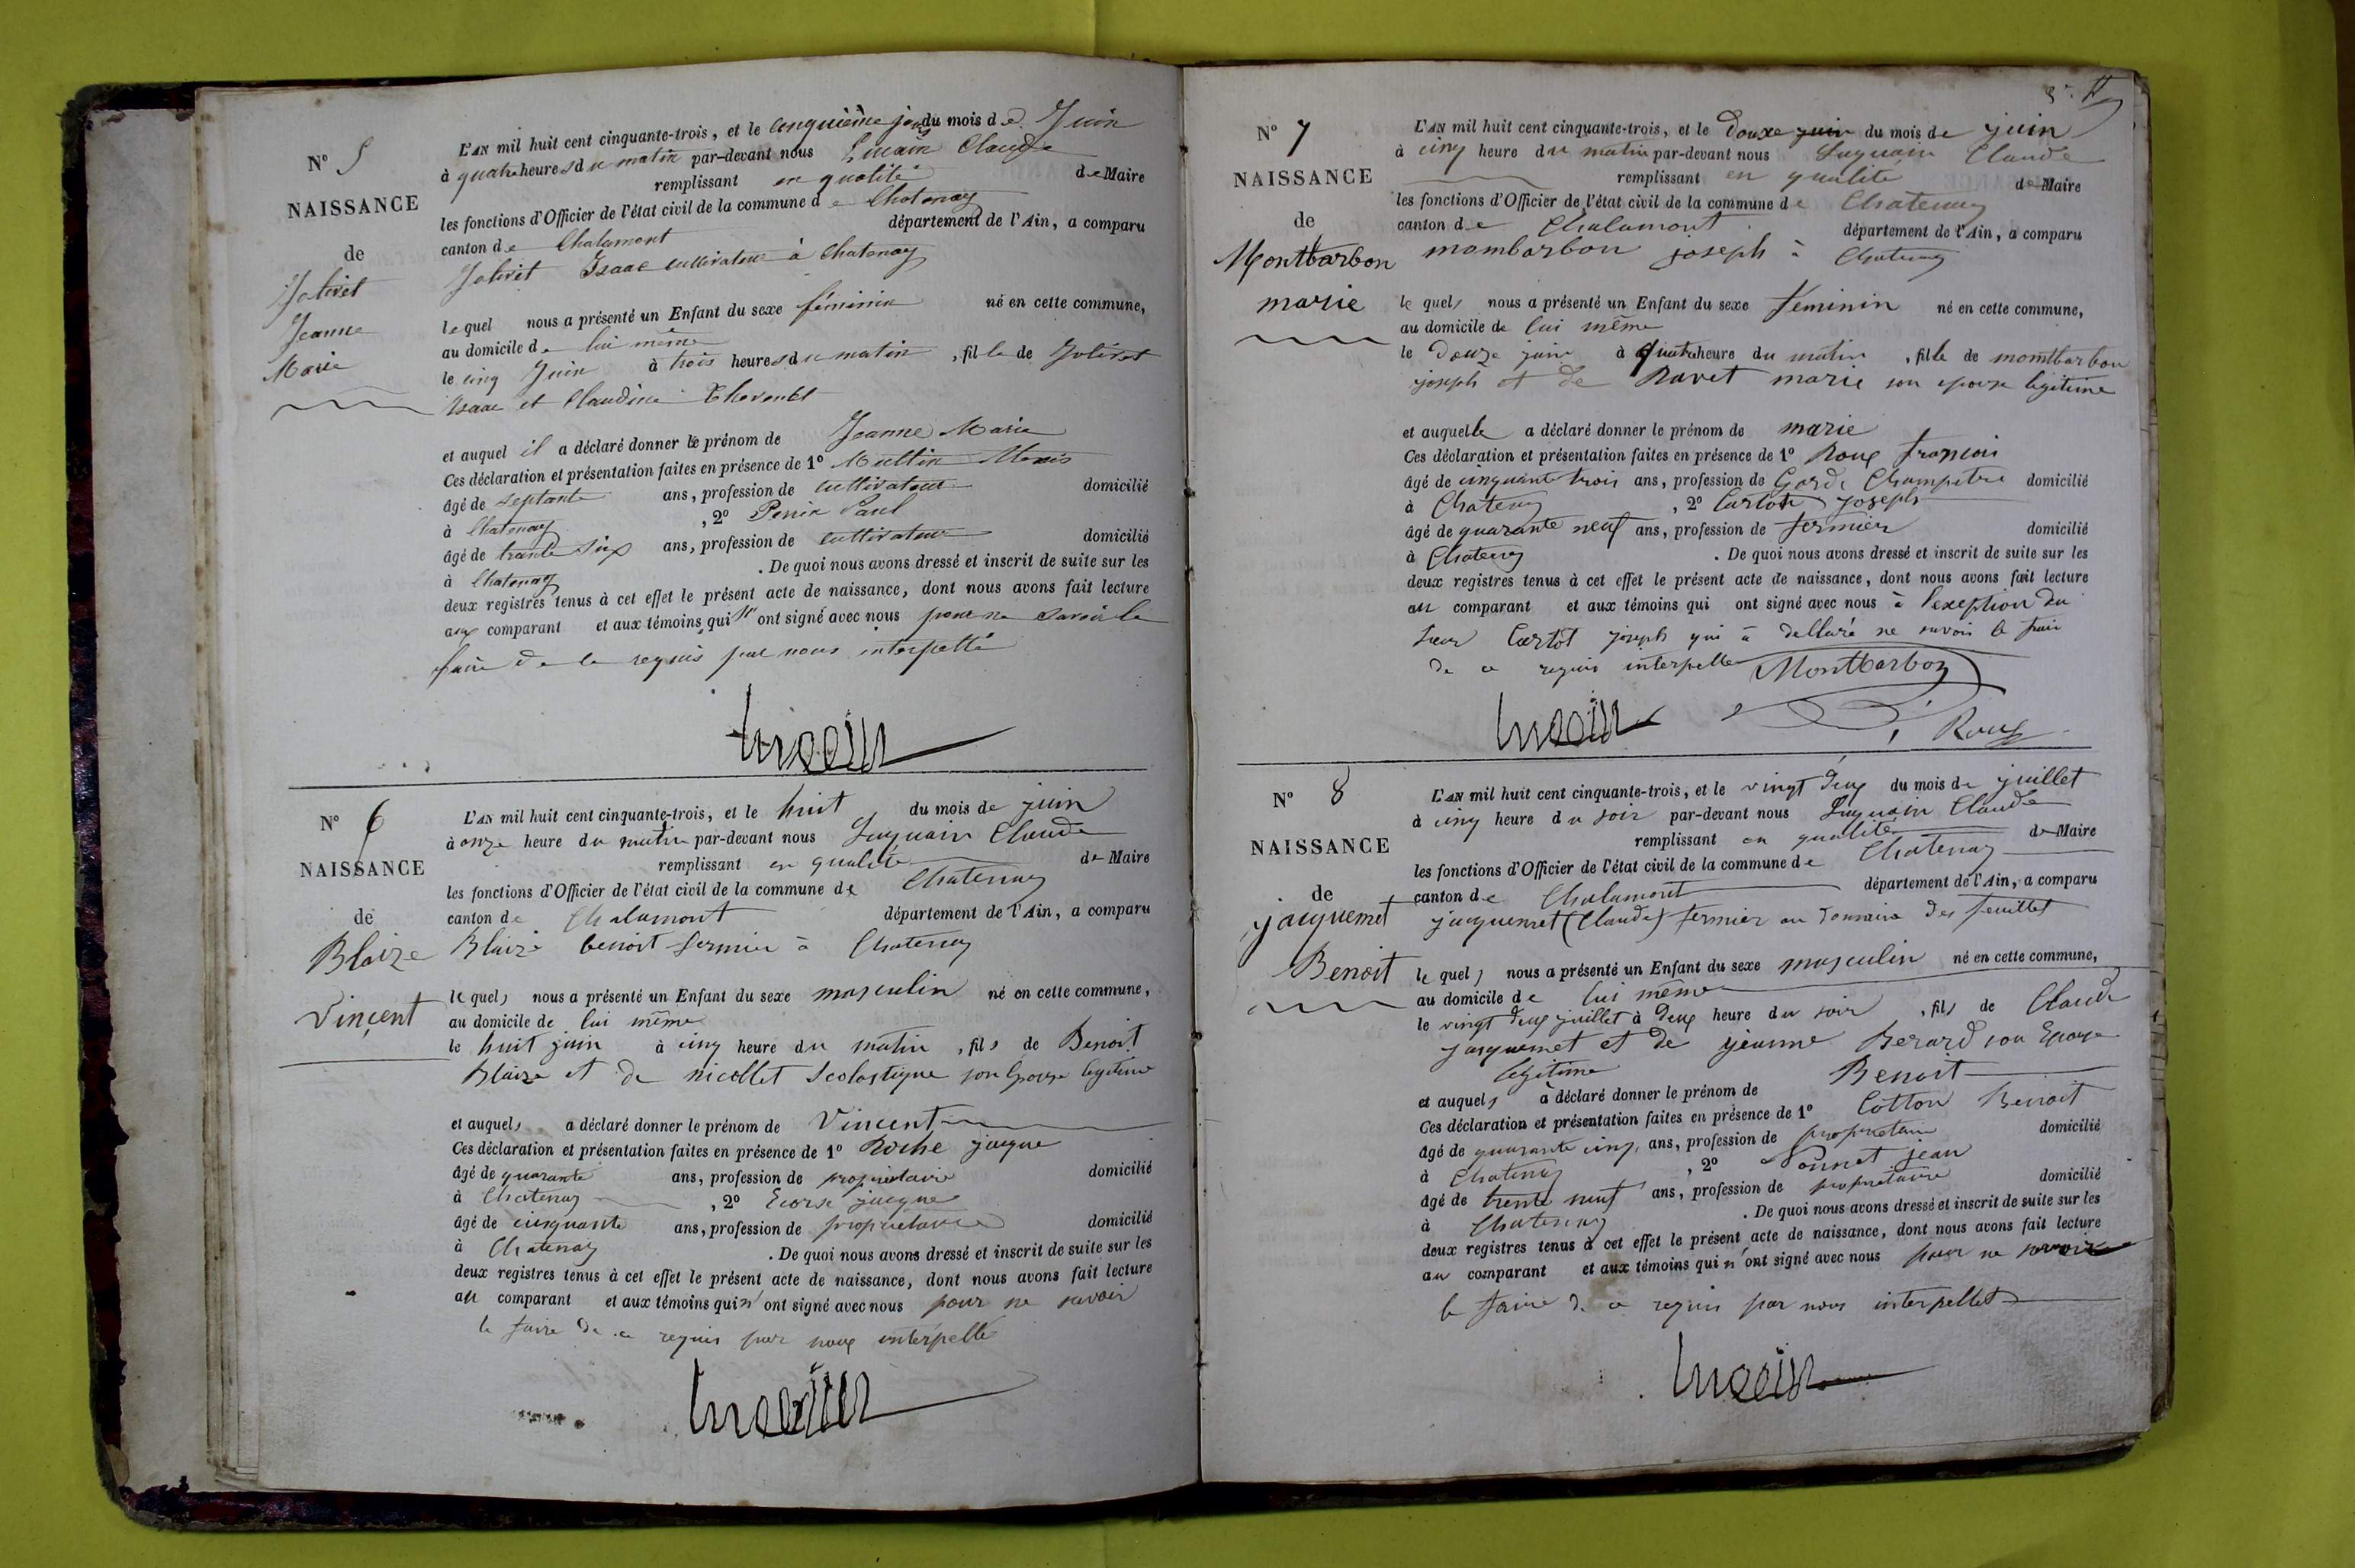 N° 5
NAISSANCE
de
Jolivet
Jeanne
Marie
L'AN mil huit cent cinquante-trois, et le cinquième jour du mois de Juin
à quatre heures du matin par-devant nous Claude
remplissant en qualité de Maire
les fonctions d'Officier de l'état civil de la commune de Chatenay
canton de Chalamont département de l'Ain, a comparu
Jolivet Isaac cultivateur à Chatenay
lequel nous a présenté un Enfant du sexe féminin né en cette commune,
au domicile de lui même
le cinq Juin à trois heures du matin, fille de Jolivet
Isaac et Claudine
et auquel il a déclaré donner le prénom de Jeanne Marie
Ces déclaration et présentation faites en présence de 1°
âgé de septante ans, profession de cultivateur domicilié
à Chatenay, 2° Perrin Paul
âgé de trante six ans, profession de cultivateur domicilié
à Chatenay. De quoi nous avons dressé et inscrit de suite sur les
deux registres tenus à cet effet le présent acte de naissance, dont nous avons fait lecture
aux comparant et aux témoins qui n' ont signé avec nous pour ne savoir le
faire de ce requis par nous interpellé
N° 6
NAISSANCE
de
Blaize
Vincent
L'AN mil huit cent cinquante-trois, et le huit du mois de juin
à onze heure du matin par-devant nous Luquain Claude
remplissant en qualité de Maire
les fonctions d'Officier de l'état civil de la commune de Chatenay
canton de Chalamont département de l'Ain, a comparu
Blaize benoit fermier à Chatenay
lequel nous a présenté un Enfant du sexe masculin né en cette commune,
au domicile de lui même
le huit juin à cinq heure du matin, fils de Benoit
Blaize et de nicollet Scolastique son Epouse legitime
et auquel a déclaré donner le prénom de Vincent
Ces déclaration et présentation faites en présence de 1° Roche jacque
âgé de quarante ans, profession de propriétaire domicilié
à Chatenay, 2° jacque
âgé de cinquante ans, profession de propriétaire domicilié
à Chatenay. De quoi nous avons dressé et inscrit de suite sur les
deux registres tenus à cet effet le présent acte de naissance, dont nous avons fait lecture
au comparant et aux témoins qui n' ont signé avec nous pour ne savoir
le faire de ce requis par nous interpellé
N° 7
NAISSANCE
de
Montbarbon
marie
L'AN mil huit cent cinquante-trois, et le douze juin du mois de juin
à cinq heure du matin par-devant nous Luquain Claude
remplissant en qualité de Maire
les fonctions d'Officier de l'état civil de la commune de Chatenay
canton de Chalamont département de l'Ain, a comparu
mombarbon joseph à Chatenay
lequel nous a présenté un Enfant du sexe féminin né en cette commune,
au domicile de lui même
le douze juin à quatre heure du matin, fille de momtbarbon
joseph et de Ravet marie son epouse legitime
et auquelle a déclaré donner le prénom de marie
Ces déclaration et présentation faites en présence de 1° Roux françois
âgé de cinquante trois ans, profession de Garde Champetre domicilié
à Chatenay, 2° Cartot joseph
âgé de quarante neuf ans, profession de fermier domicilié
à Chatenay. De quoi nous avons dressé et inscrit de suite sur les
deux registres tenus à cet effet le présent acte de naissance, dont nous avons fait lecture
au comparant et aux témoins qui ont signé avec nous à l'exeption du
sieur Cartot joseph qui à dellaré ne savoir le fair
de ce requis interpellé Montbarbon
Roux
N° 8
NAISSANCE
de
jacquemet
Benoit
L'AN mil huit cent cinquante-trois, et le vingt deux du mois de juillet
à cinq heure du soir par-devant nous Luquain Claude
remplissant en qualité de Maire
les fonctions d'Officier de l'état civil de la commune de Chatenay
canton de Chalamont département de l'Ain, a comparu
jacquemet (Claude) fermier au domaine des feuillet
lequel nous a présenté un Enfant du sexe masculin né en cette commune,
au domicile de lui même
le vingt deux juillet à deux heure du soir, fils de Claude
jacquemet et de jeanne Berard son Epouse
legitime
et auquel à déclaré donner le prénom de Benoit
Ces déclaration et présentation faites en présence de 1° Cotton Benoit
âgé de quarante cinq ans, profession de propriétaire domicilié
à Chatenay, 2° jean
âgé de trente neuf ans, profession de propriétaire domicilié
à Chatenay. De quoi nous avons dressé et inscrit de suite sur les
deux registres tenus à cet effet le présent acte de naissance, dont nous avons fait lecture
au comparant et aux témoins qui n' ont signé avec nous pour ne savoir
le faire de ce requis par nous interpellet